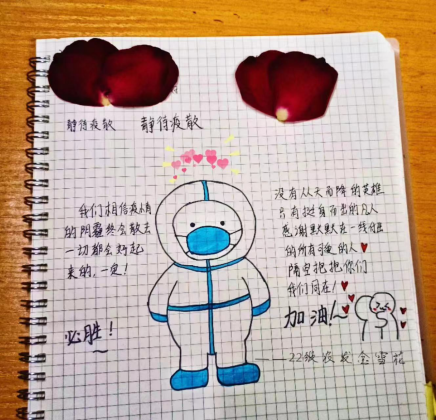 静待疫散 静待疫散
我们相信疫情
的阴霾终会散去
一切都会好起
来的,一定!
必胜!
没有从天而降的英雄
只有挺身而出的凡人
感谢默默在一线付出
的所有可爱的人
隔空抱抱你们
我们同在!
加油!
——22级